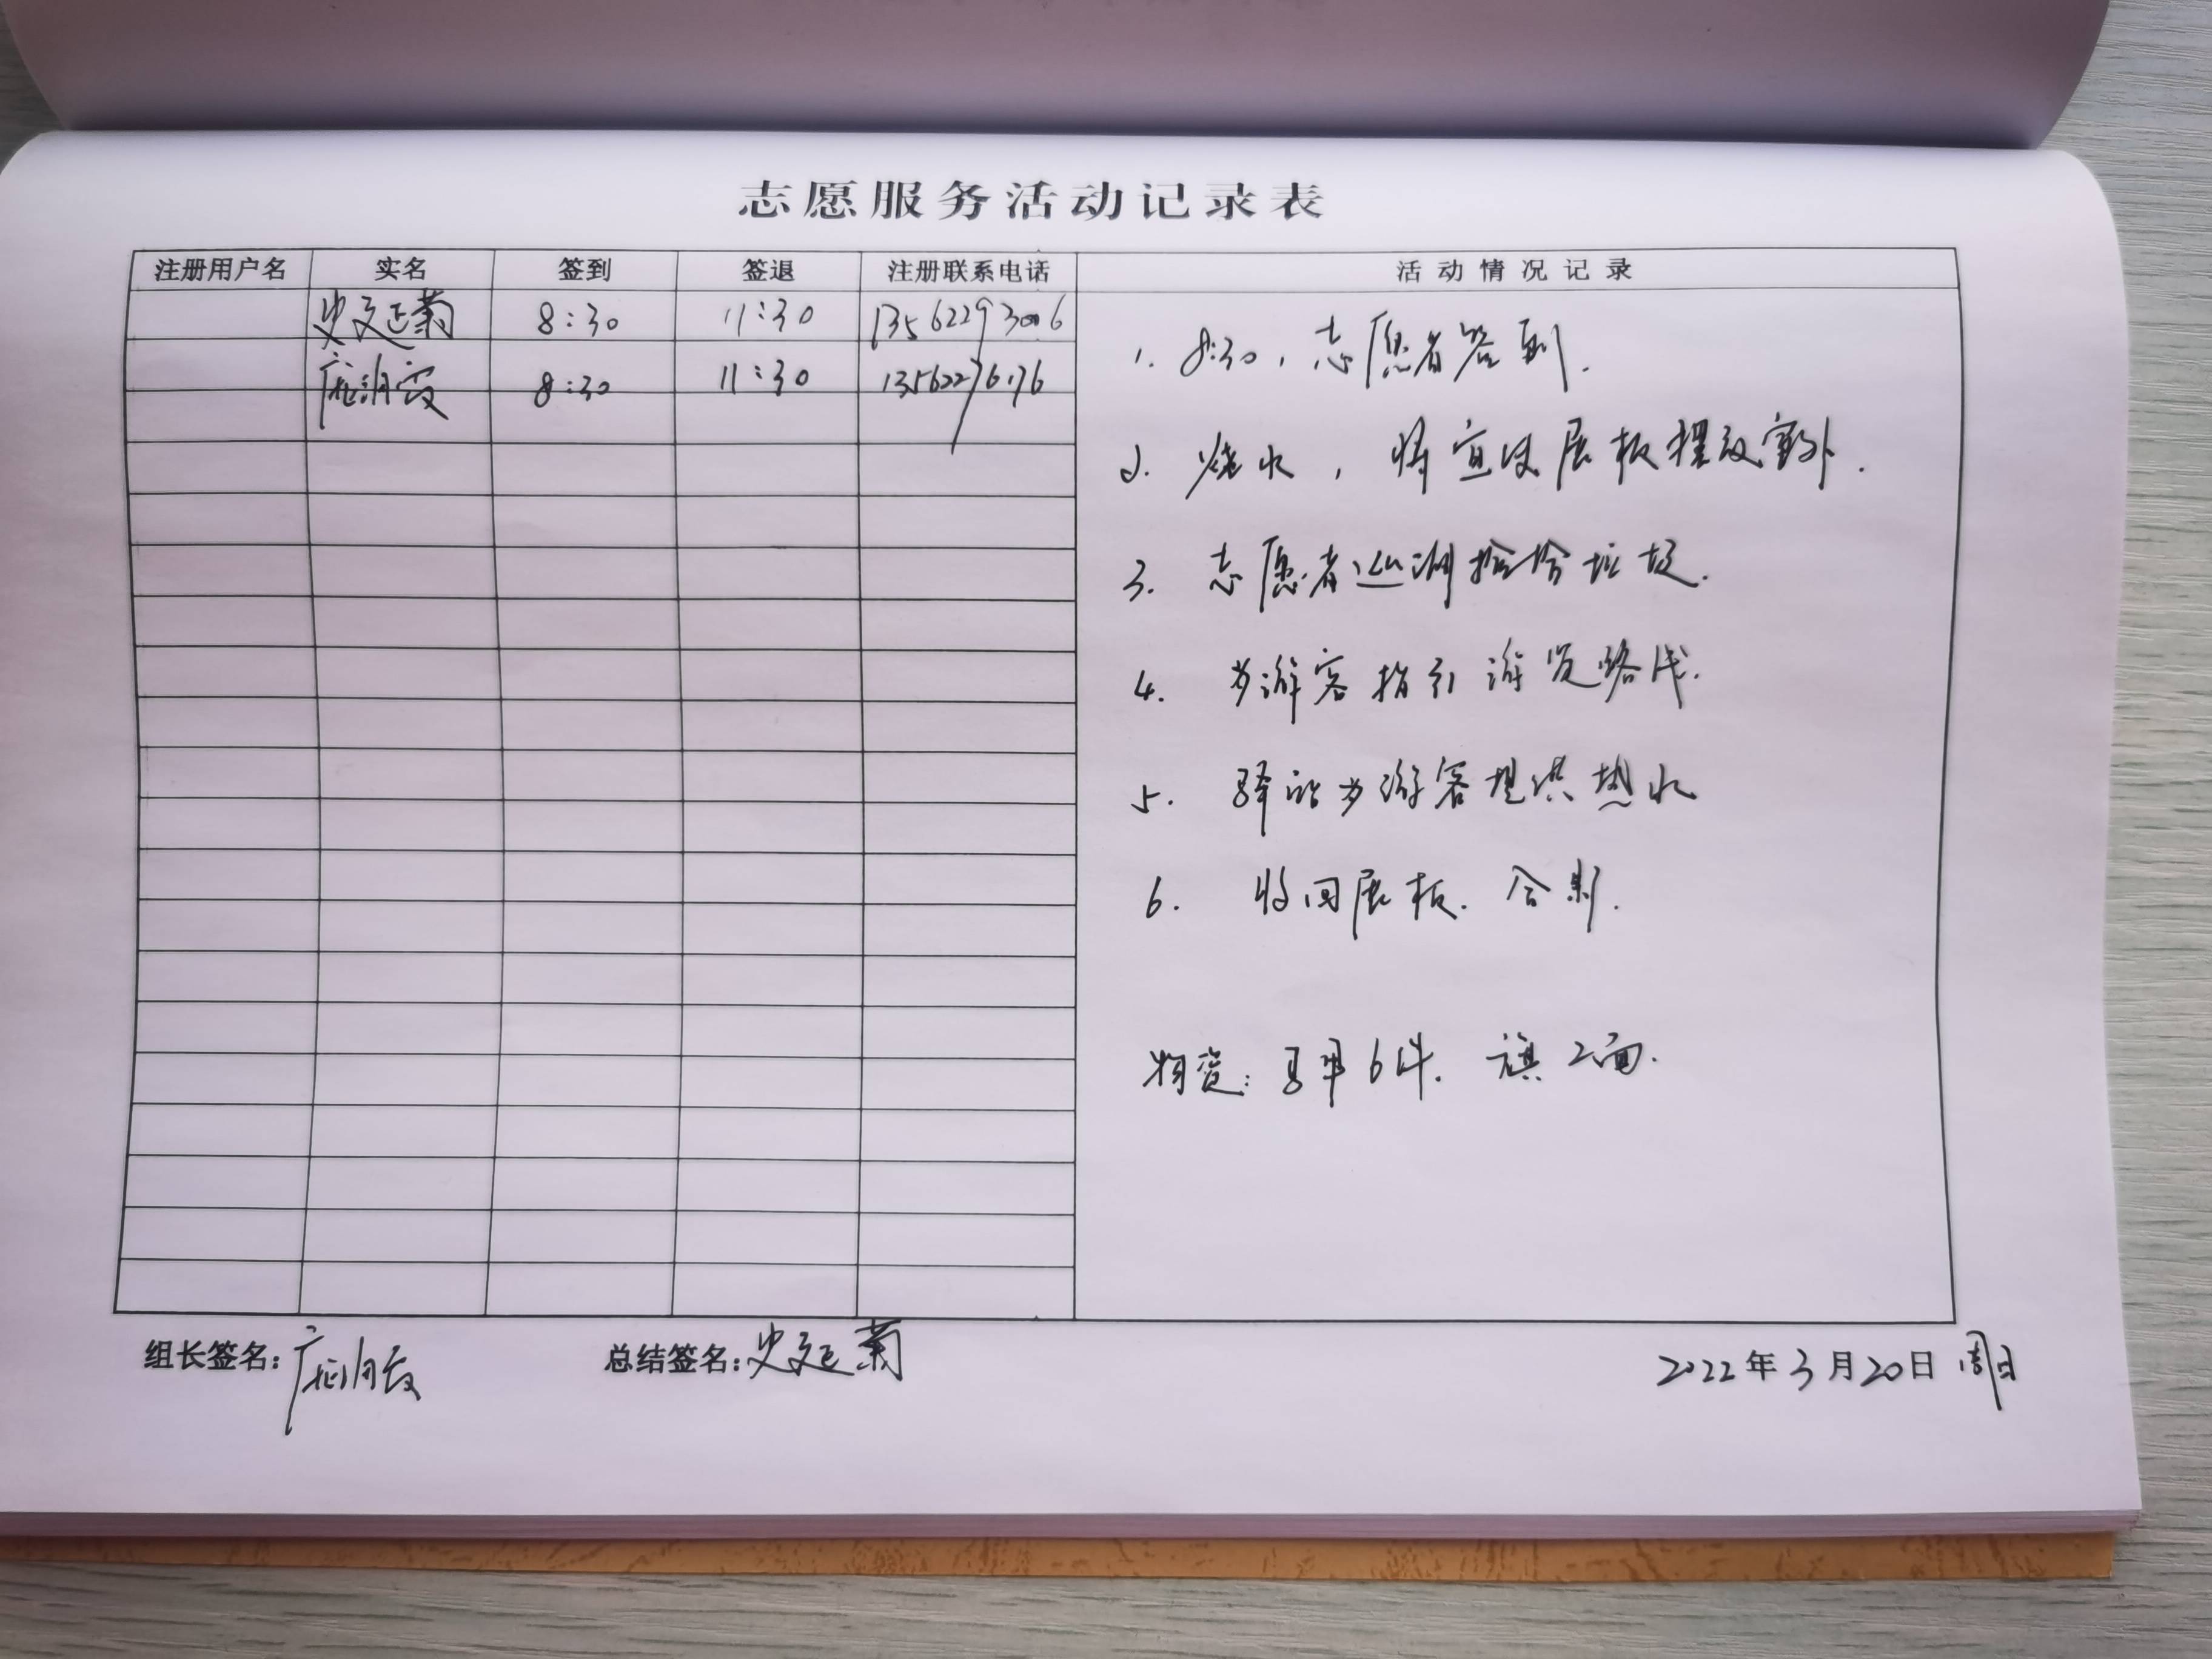 志愿服务活动记录表
注册用户名 实名 签到 签退 注册联系电话 活动情况记录
史延菊 8:30 11:30 13562293006
庞润霞 8:30 11:30 13562276176
1. 8:30，志愿者签到.
2. 烧水，将宣传展板摆放室外.
3. 志愿者巡湖捡拾垃圾.
4. 为游客指引游览路线.
5. 驿站为游客提供热水
6. 收回展板. 合影.
物资: 马甲6件. 旗2面.
组长签名: 庞润霞 总结签名: 史延菊 2022年3月20日 周日